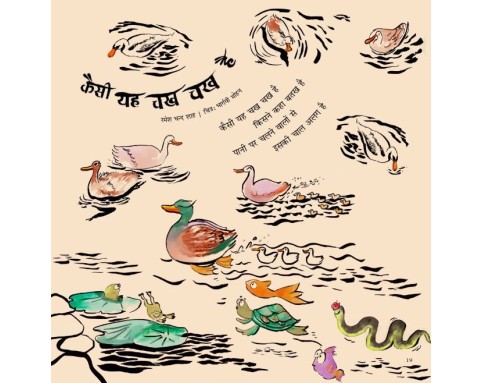 कैसी यह चख चख है
रमेश चन्द्र शाह | चित्र: भार्गवी
कैसी यह चख चख है
किसने कहा बतख है
पानी पर चलने वालों से
इसकी चाल अलग है
19